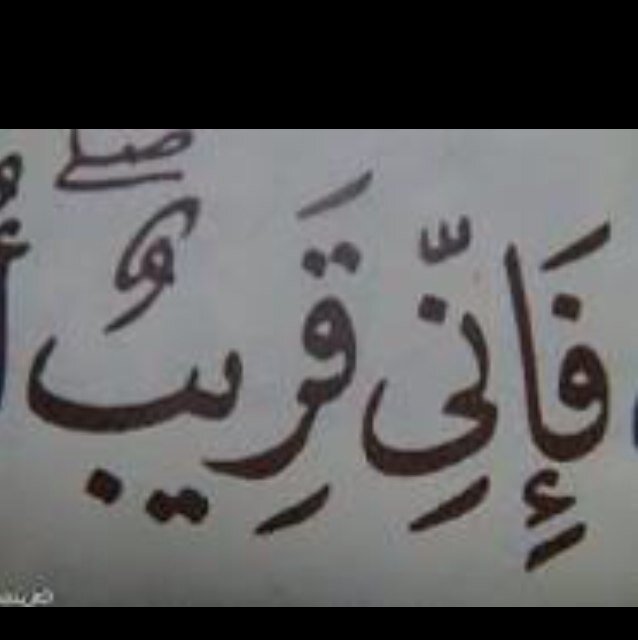 فَإِنِّي قَرِيبٌ ۖ